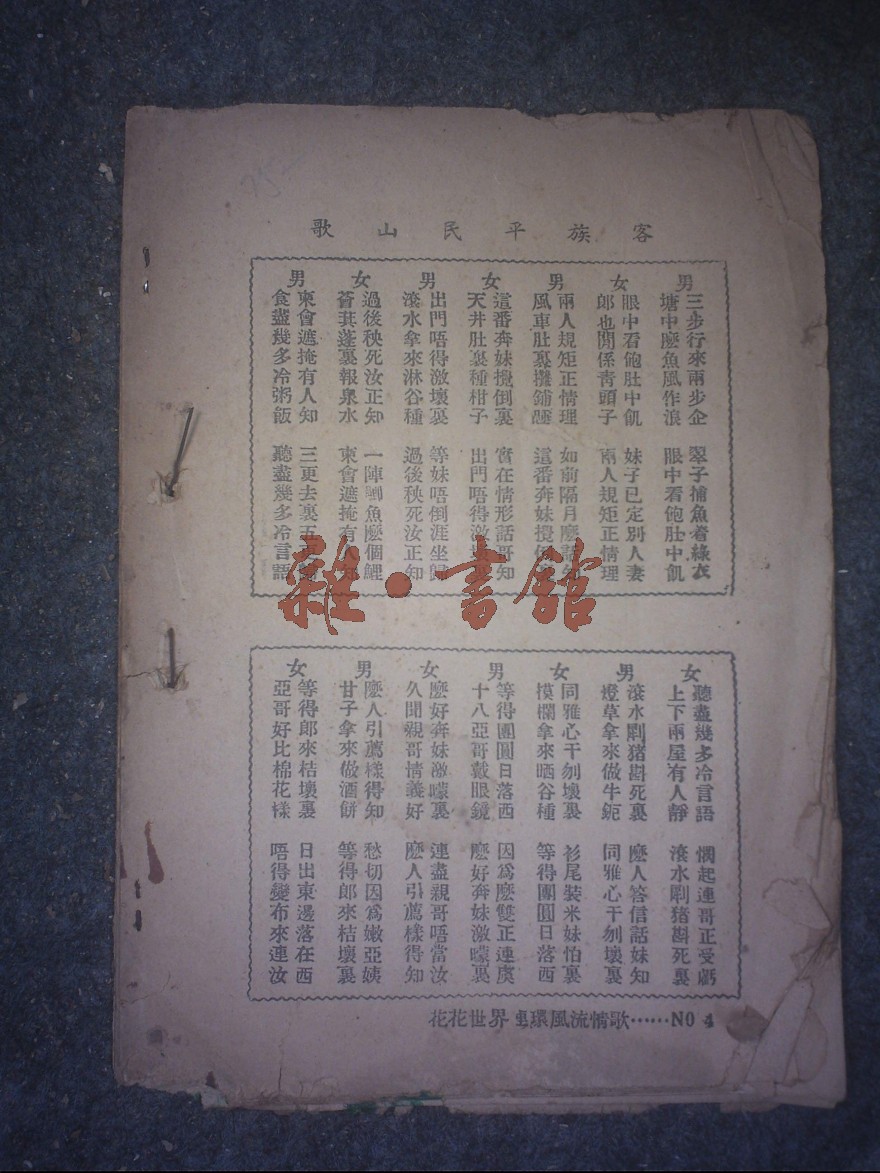 客族平民山歌
男
三步行來兩步企 翠子捕魚着綠衣
塘中麽魚風作浪 眼中看飽肚中飢
女
眼中看飽肚中飢 妹子已定別人妻
郎也閒係青頭子 兩人規矩正情理
男
兩人規矩正情理 如前隔月麽
風車肚裏攤鋪睡 這番奔妹攪
女
這番奔妹攪倒裏 實在情形話哥知
天井肚裏種柑子 出門唔得激壞裏
男
出門唔得激壞裏 等妹唔倒涯坐歸
滾水拿來淋谷種 過後秧死汝正知
女
過後秧死汝正知 一陣鯽魚麽個鯉
箕蓬裏報泉水 柬會遮掩有人知
男
柬會遮掩有人知 三更去裏五更
食盡幾多冷粥飯 聽盡幾多冷言語
女
聽盡幾多冷言語 憫起連哥正受虧
上下兩屋有人靜 滾水剛猪斟死裏
男
滾水剛猪斟死裏 麽人答信話妹知
燈草拿來做牛軛 同雅心干刎壞裏
女
同雅心干刎壞裏 衫尾裝米妹怕裏
摸欄拿來晒谷種 等得團圓日落西
男
等得團圓日落西 因爲麽雙正連虞
十八亞哥戴眼鏡 麽好奔妹激矇裏
女
麽好奔妹激矇裏 連盡親哥唔當汝
久聞親哥情義好 麽人引薦樣得知
男
麽人引薦樣得知 愁切因爲嫩亞姨
甘子拿來做酒餅 等得郎來桔壞裏
女
等得郎來桔壞裏 日出東邊落在西
亞哥好比棉花樣 唔得變布來連汝
花花世界 連環風流情歌……NO 4
雜·書館